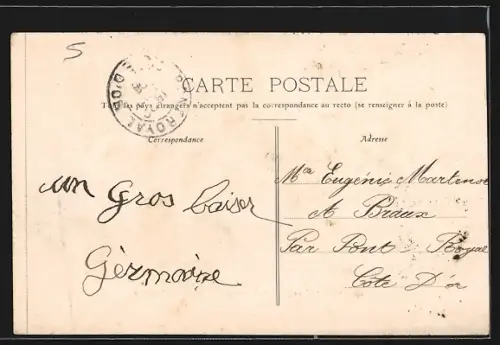 5
CARTE POSTALE
Tous les pays étrangers n'acceptent pas la correspondance au recto (se renseigner à la poste)
Correspondance
Adresse
un Gros baiser
Germaine
Eugénie
A Braux
Par Pont-Royal
Côte D'or
ROYAL
D'OR